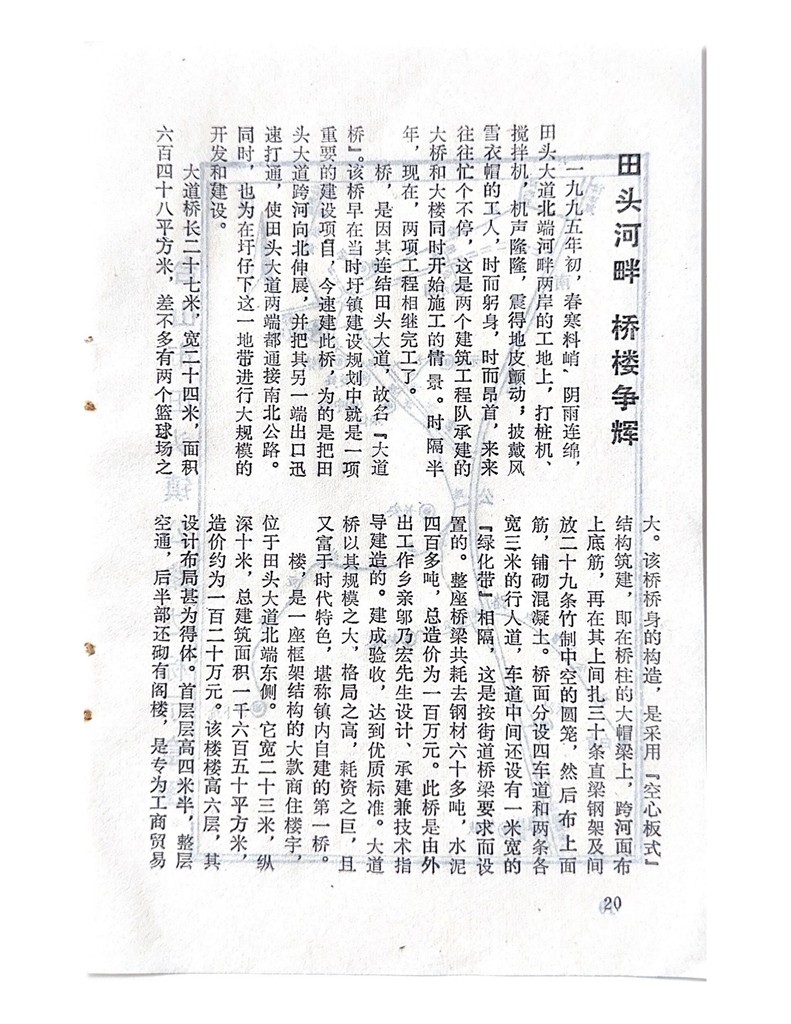 田头河畔 桥楼争辉
一九九五年初，春寒料峭、阴雨连绵，
田头大道北端河畔两岸的工地上，打桩机、
搅拌机，机声隆隆，震得地皮颤动；披戴风
雪衣帽的工人，时而躬身，时而昂首，来来
往往忙个不停，这是两个建筑工程队承建的
大桥和大楼同时开始施工的情景。时隔半
年，现在，两项工程相继完工了。
桥，是因其连结田头大道，故名『大道
桥』。该桥早在当时圩镇建设规划中就是一项
重要的建设项目，今速建此桥，为的是把田
头大道跨河向北伸展，并把其另一端出口迅
速打通，使田头大道两端都通接南北公路。
同时，也为在圩仔下这一地带进行大规模的
开发和建设。
大道桥长二十七米，宽二十四米，面积
六百四十八平方米，差不多有两个篮球场之
大。该桥桥身的构造，是采用『空心板式』
结构筑建，即在桥柱的大帽梁上，跨河面布
上底筋，再在其上间扎三十条直梁钢架及间
放二十九条竹制中空的圆笼，然后布上面
筋，铺砌混凝土。桥面分设四车道和两条各
宽三米的行人道，车道中间还设有一米宽的
『绿化带』相隔，这是按街道桥梁要求而设
置的。整座桥梁共耗去钢材六十多吨，水泥
四百多吨，总造价为一百万元。此桥是由外
出工作乡亲邬乃宏先生设计、承建兼技术指
导建造的。建成验收，达到优质标准。大道
桥以其规模之大，格局之高，耗资之巨，且
又富于时代特色，堪称镇内自建的第一桥。
楼，是一座框架结构的大款商住楼宇，
位于田头大道北端东侧。它宽二十三米，纵
深十米，总建筑面积一千六百五十平方米，
造价约为一百二十万元。该楼楼高六层，其
设计布局甚为得体。首层层高四米半，整层
空通，后半部还砌有阁楼，是专为工商贸易
20